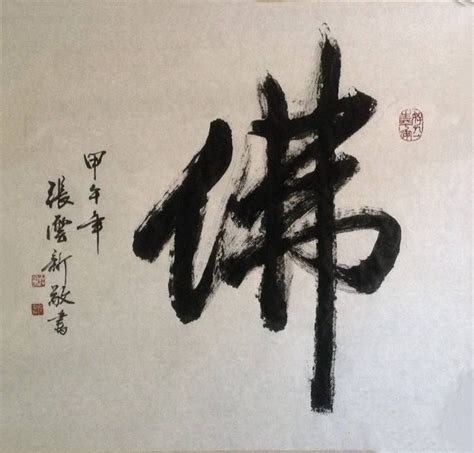 佛
甲午年
張雲新敬書